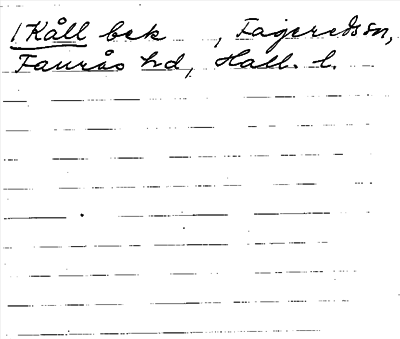 1 Kåll bek , Fagereds sn,
Faurås hd, Hall. l.